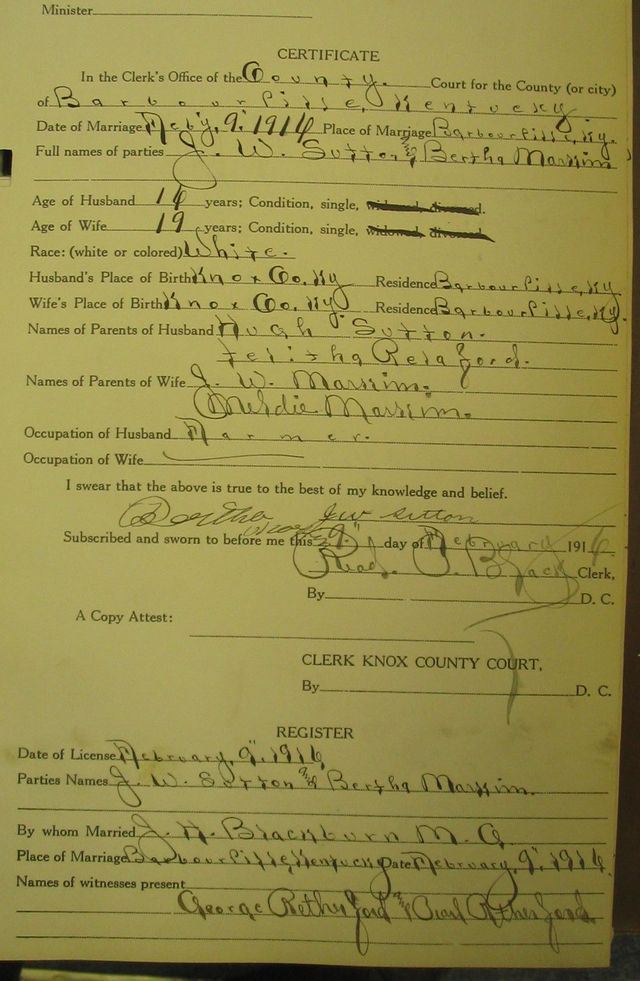 Minister
CERTIFICATE
In the Clerk's Office of the County. Court for the County (or city)
of Barbourville, Kentucky.
Date of Marriage Feb'y, 9," 1916 Place of Marriage Barbourville, Ky.
Full names of parties J. W. Sutton & Bertha Massim
Age of Husband 16 years; Condition, single, widowed, divorced.
Age of Wife 19 years; Condition, single, widowed, divorced.
Race: (white or colored) White.
Husband's Place of Birth Knox Co, Ky Residence Barbourville, Ky
Wife's Place of Birth Knox Co, Ky. Residence Barbourville, Ky.
Names of Parents of Husband Hugh Sutton.
Relaford.
Names of Parents of Wife J. W. Massim.
Massim.
Occupation of Husband Farmer.
Occupation of Wife
I swear that the above is true to the best of my knowledge and belief.
Bertha JW Sutton
Subscribed and sworn to before me this 9" day of February 1916
Read. P. Black Clerk,
By D. C.
A Copy Attest:
CLERK KNOX COUNTY COURT,
By D. C.
REGISTER
Date of License February, 9", 1916
Parties Names J. W. Sutton & Bertha Massim.
By whom Married J. H. Blackburn M. G.
Place of Marriage Barbourville, Kentucky Date February, 9", 1916.
Names of witnesses present
George Retherford & Pearl Retherford